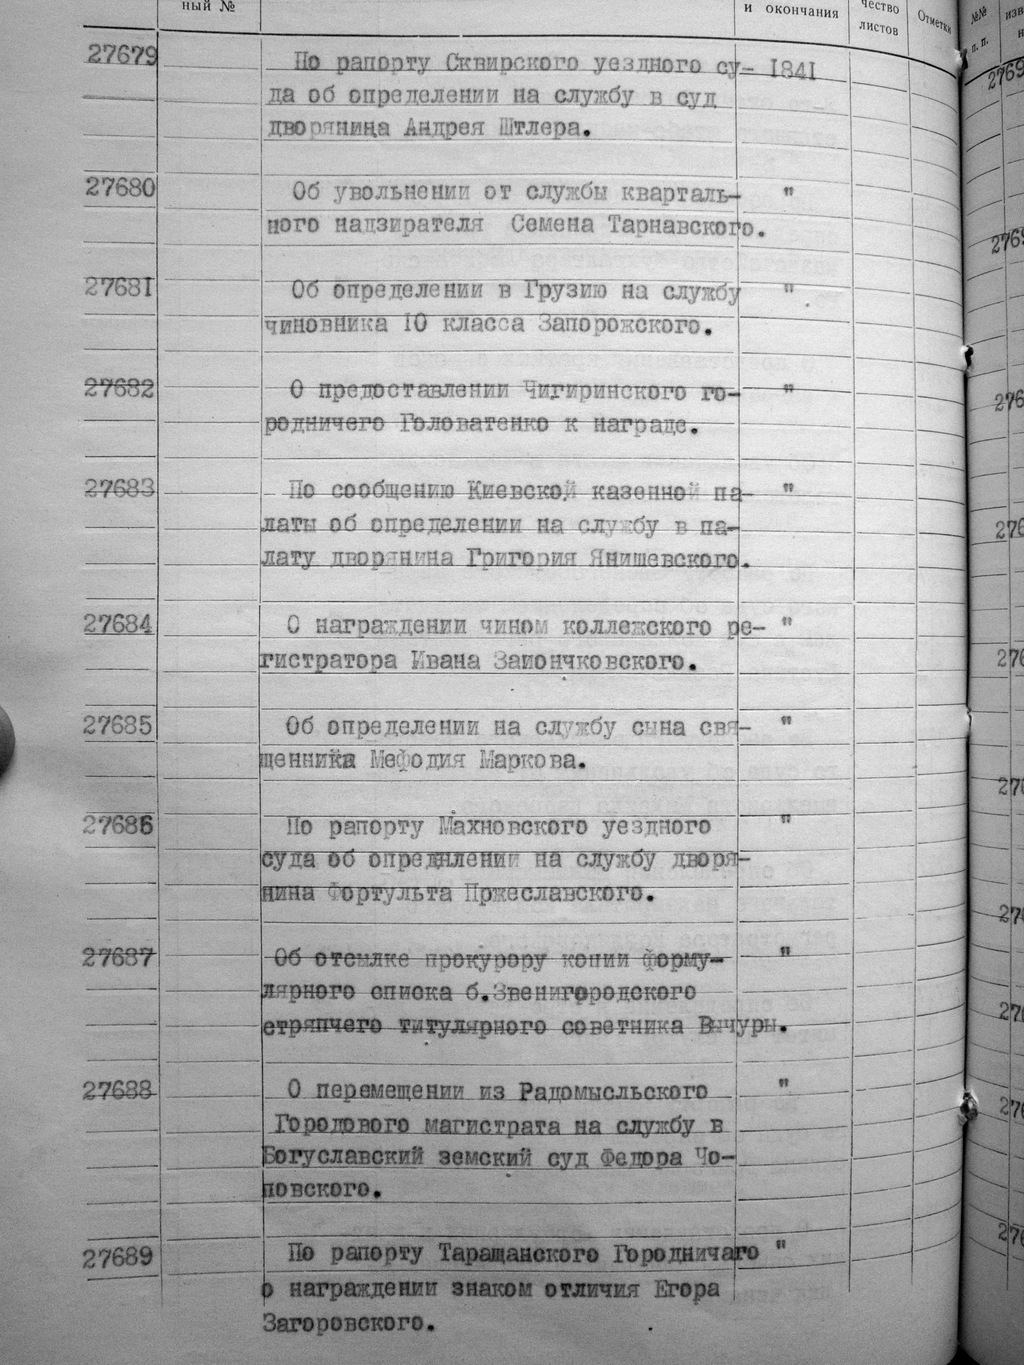 ный № и окончания чество листов Отметки №№ п. п.
27679 По рапорту Сквирского уездного су- 1841
да об определении на службу в суд
дворянина Андрея Штлера.
27680 Об увольнении от службы кварталь- "
ного надзирателя Семена Тарнавского.
27681 Об определении в Грузию на службу "
чиновника 10 класса Запорожского.
27682 О предоставлении Чигиринского го- "
родничего Головатенко к награде.
27683 По сообщению Киевской казенной па- "
латы об определении на службу в па-
лату дворянина Григория Янишевского.
27684 О награждении чином коллежского ре- "
гистратора Ивана Заиончковского.
27685 Об определении на службу сына свя- "
щенника Мефодия Маркова.
27686 По рапорту Махновского уездного "
суда об определении на службу дворя-
нина Фортульта Пржеславского.
27687 Об отсылке прокурору копии форму- "
лярного списка б.Звенигородского
стряпчего титулярного советника Вычуры.
27688 О перемещении из Радомысльского "
Городового магистрата на службу в
Богуславский земский суд Федора Чо-
повского.
27689 По рапорту Таращанского Городничаго "
о награждении знаком отличия Егора
Загоровского.